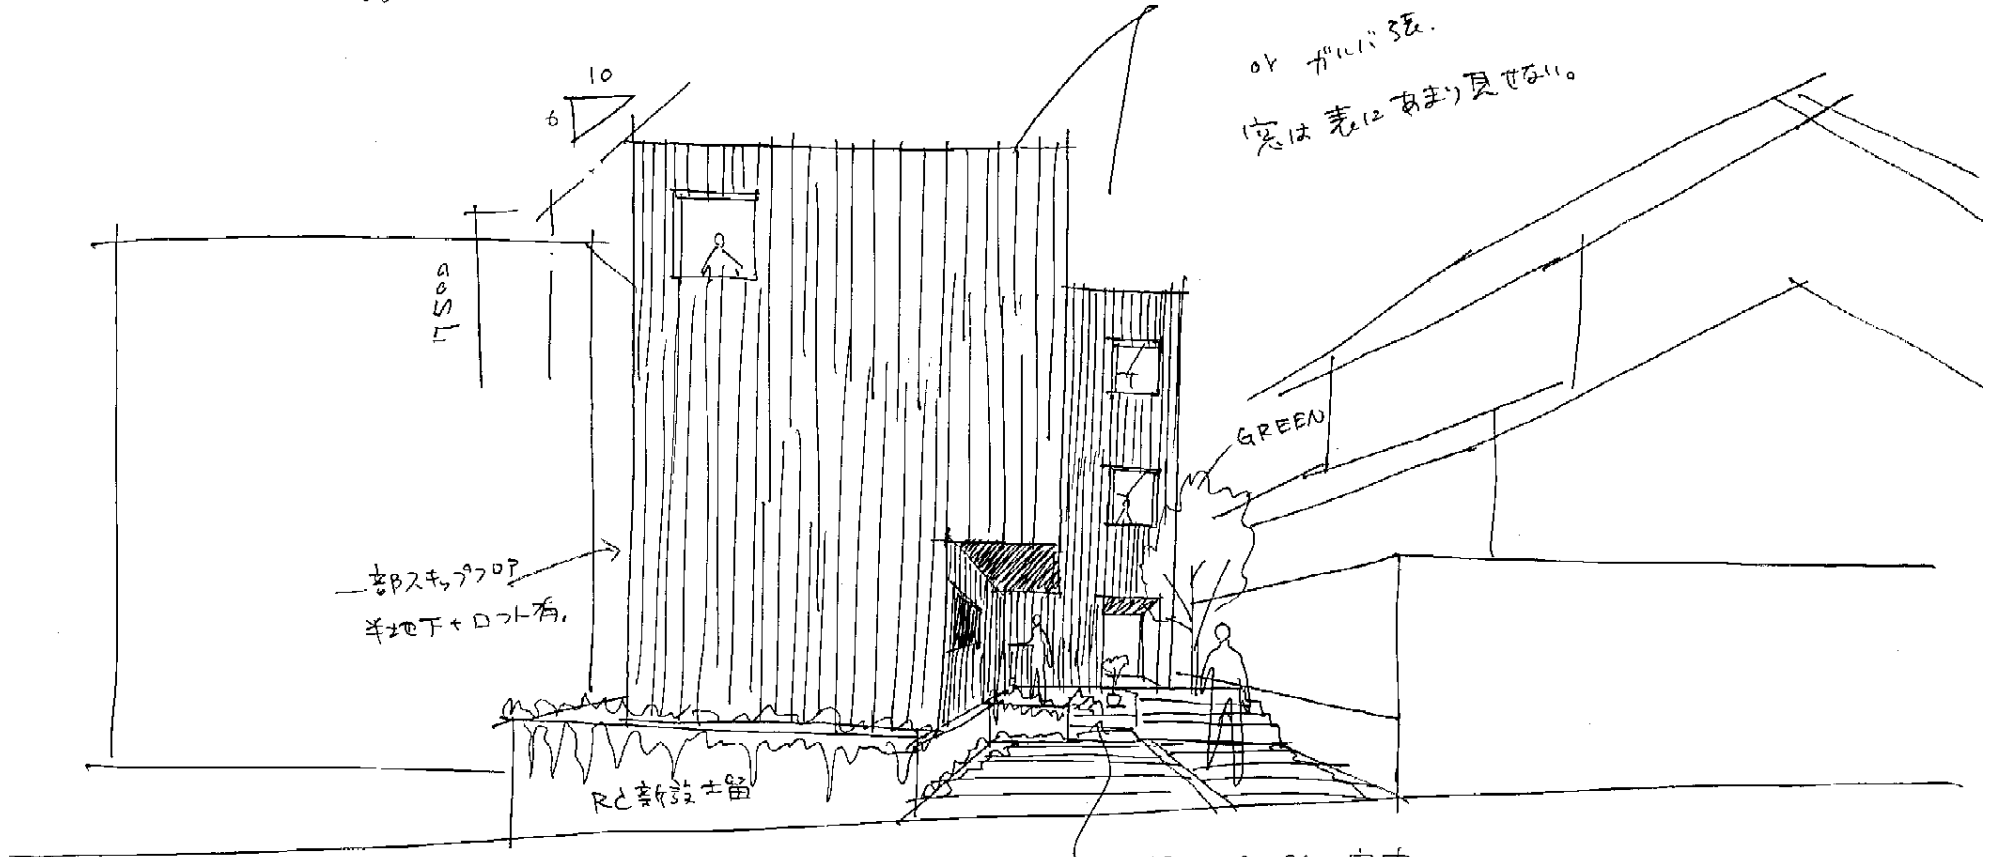 or ガルバ張.
窓は表にあまり見せない。
10
6
7500
GREEN
一部スキップフロア
半地下+ロフト有.
RC新設土留